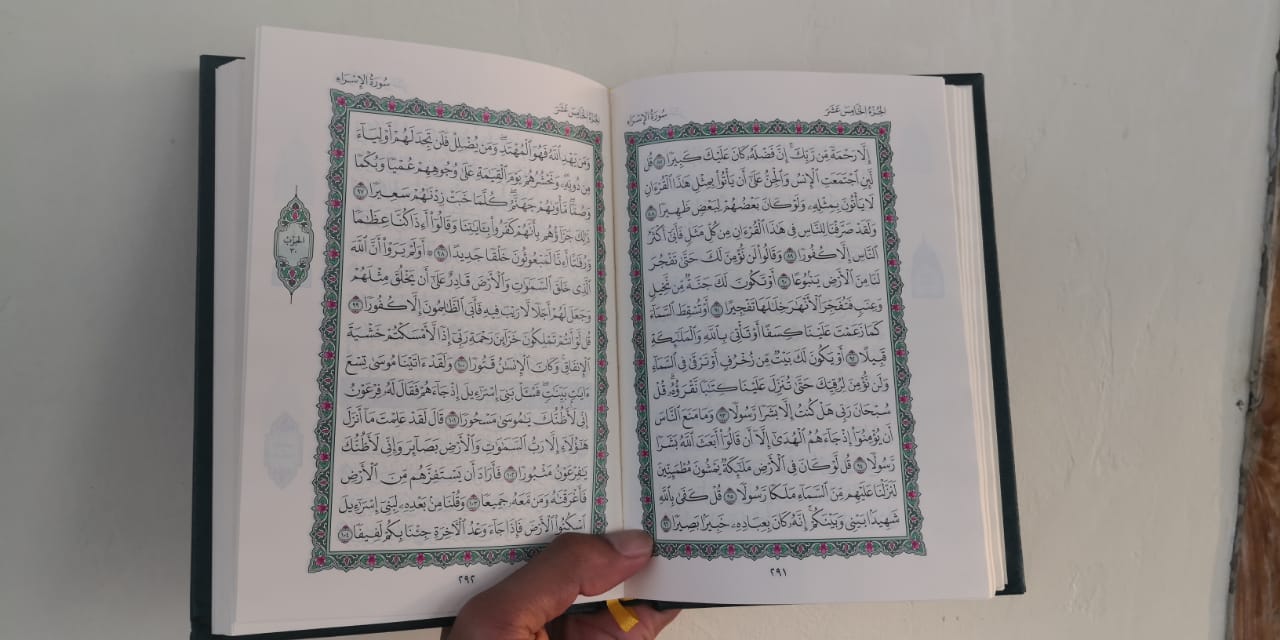 الجزء الخامس عشر
سورة الإسراء
إِلَّا رَحْمَةً مِّن رَّبِّكَ ۚ إِنَّ فَضْلَهُ كَانَ عَلَيْكَ كَبِيرًا ٨٧ قُل
لَّئِنِ اجْتَمَعَتِ الْإِنسُ وَالْجِنُّ عَلَىٰ أَن يَأْتُوا بِمِثْلِ هَٰذَا الْقُرْءَانِ
لَا يَأْتُونَ بِمِثْلِهِ وَلَوْ كَانَ بَعْضُهُمْ لِبَعْضٍ ظَهِيرًا ٨٨
وَلَقَدْ صَرَّفْنَا لِلنَّاسِ فِي هَٰذَا الْقُرْءَانِ مِن كُلِّ مَثَلٍ فَأَبَىٰ أَكْثَرُ
النَّاسِ إِلَّا كُفُورًا ٨٩ وَقَالُوا لَن نُّؤْمِنَ لَكَ حَتَّىٰ تَفْجُرَ
لَنَا مِنَ الْأَرْضِ يَنبُوعًا ٩٠ أَوْ تَكُونَ لَكَ جَنَّةٌ مِّن نَّخِيلٍ
وَعِنَبٍ فَتُفَجِّرَ الْأَنْهَٰرَ خِلَٰلَهَا تَفْجِيرًا ٩١ أَوْ تُسْقِطَ السَّمَاءَ
كَمَا زَعَمْتَ عَلَيْنَا كِسَفًا أَوْ تَأْتِيَ بِاللَّهِ وَالْمَلَٰئِكَةِ
قَبِيلًا ٩٢ أَوْ يَكُونَ لَكَ بَيْتٌ مِّن زُخْرُفٍ أَوْ تَرْقَىٰ فِي السَّمَاءِ
وَلَن نُّؤْمِنَ لِرُقِيِّكَ حَتَّىٰ تُنَزِّلَ عَلَيْنَا كِتَٰبًا نَّقْرَؤُهُ ۗ قُلْ
سُبْحَانَ رَبِّي هَلْ كُنتُ إِلَّا بَشَرًا رَّسُولًا ٩٣ وَمَا مَنَعَ النَّاسَ
أَن يُؤْمِنُوا إِذْ جَاءَهُمُ الْهُدَىٰ إِلَّا أَن قَالُوا أَبَعَثَ اللَّهُ بَشَرًا
رَّسُولًا ٩٤ قُل لَّوْ كَانَ فِي الْأَرْضِ مَلَٰئِكَةٌ يَمْشُونَ مُطْمَئِنِّينَ
لَنَزَّلْنَا عَلَيْهِم مِّنَ السَّمَاءِ مَلَكًا رَّسُولًا ٩٥ قُلْ كَفَىٰ بِاللَّهِ
شَهِيدًا بَيْنِي وَبَيْنَكُمْ ۚ إِنَّهُ كَانَ بِعِبَادِهِ خَبِيرًا بَصِيرًا ٩٦
٢٩١
الجزء الخامس عشر
سورة الإسراء
وَمَن يَهْدِ اللَّهُ فَهُوَ الْمُهْتَدِ ۖ وَمَن يُضْلِلْ فَلَن تَجِدَ لَهُمْ أَوْلِيَاءَ
مِن دُونِهِ ۖ وَنَحْشُرُهُمْ يَوْمَ الْقِيَٰمَةِ عَلَىٰ وُجُوهِهِمْ عُمْيًا وَبُكْمًا
وَصُمًّا ۖ مَّأْوَىٰهُمْ جَهَنَّمُ ۖ كُلَّمَا خَبَتْ زِدْنَٰهُمْ سَعِيرًا ٩٧
ذَٰلِكَ جَزَاؤُهُم بِأَنَّهُمْ كَفَرُوا بِـَٔايَٰتِنَا وَقَالُوا أَءِذَا كُنَّا عِظَٰمًا
وَرُفَٰتًا أَءِنَّا لَمَبْعُوثُونَ خَلْقًا جَدِيدًا ٩٨ ۞ أَوَلَمْ يَرَوْا أَنَّ اللَّهَ
الَّذِي خَلَقَ السَّمَٰوَٰتِ وَالْأَرْضَ قَادِرٌ عَلَىٰ أَن يَخْلُقَ مِثْلَهُمْ
وَجَعَلَ لَهُمْ أَجَلًا لَّا رَيْبَ فِيهِ فَأَبَى الظَّٰلِمُونَ إِلَّا كُفُورًا ٩٩
قُل لَّوْ أَنتُمْ تَمْلِكُونَ خَزَائِنَ رَحْمَةِ رَبِّي إِذًا لَّأَمْسَكْتُمْ خَشْيَةَ
الْإِنفَاقِ ۚ وَكَانَ الْإِنسَٰنُ قَتُورًا ١٠٠ وَلَقَدْ ءَاتَيْنَا مُوسَىٰ تِسْعَ
ءَايَٰتٍ بَيِّنَٰتٍ ۖ فَسْـَٔلْ بَنِي إِسْرَٰءِيلَ إِذْ جَاءَهُمْ فَقَالَ لَهُ فِرْعَوْنُ
إِنِّي لَأَظُنُّكَ يَٰمُوسَىٰ مَسْحُورًا ١٠١ قَالَ لَقَدْ عَلِمْتَ مَا أَنزَلَ
هَٰؤُلَاءِ إِلَّا رَبُّ السَّمَٰوَٰتِ وَالْأَرْضِ بَصَائِرَ وَإِنِّي لَأَظُنُّكَ
يَٰفِرْعَوْنُ مَثْبُورًا ١٠٢ فَأَرَادَ أَن يَسْتَفِزَّهُم مِّنَ الْأَرْضِ
فَأَغْرَقْنَٰهُ وَمَن مَّعَهُ جَمِيعًا ١٠٣ وَقُلْنَا مِن بَعْدِهِ لِبَنِي إِسْرَٰءِيلَ
اسْكُنُوا الْأَرْضَ فَإِذَا جَاءَ وَعْدُ الْآخِرَةِ جِئْنَا بِكُمْ لَفِيفًا ١٠٤
الحزب
٣٠
٢٩٢